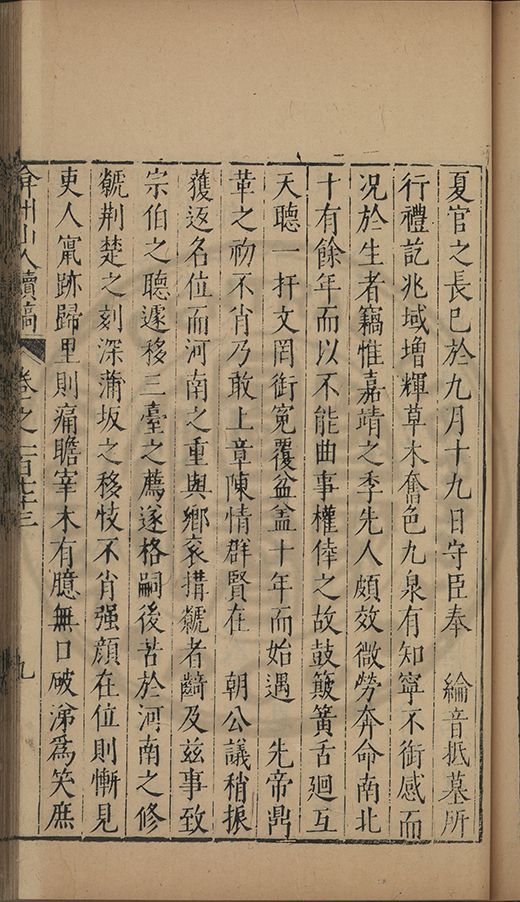 夏官之長已於九月十九日守臣奉　綸音抵墓所
行禮訖兆域增輝草木奮色九泉有知寧不銜感而
况於生者竊惟嘉靖之季先人頗效微勞奔命南北
十有餘年而以不能曲事權倖之故鼓簸簧舌廻互
天聽一扞文罔銜寃覆盆盖十年而始遇　先帝鼎
革之初不肖乃敢上章陳情群賢在　朝公議稍振
獲返名位而河南之重與鄉衮搆虩者齮及兹事致
宗伯之聽遽移三臺之薦遂格嗣後苦於河南之修
虩荆楚之刻深蒲坂之移忮不肖强顔在位則慚見
吏人竄跡歸里則痛瞻宰木有臆無口破涕為笑庶
弇州山人續稿
卷之一百七十三
九